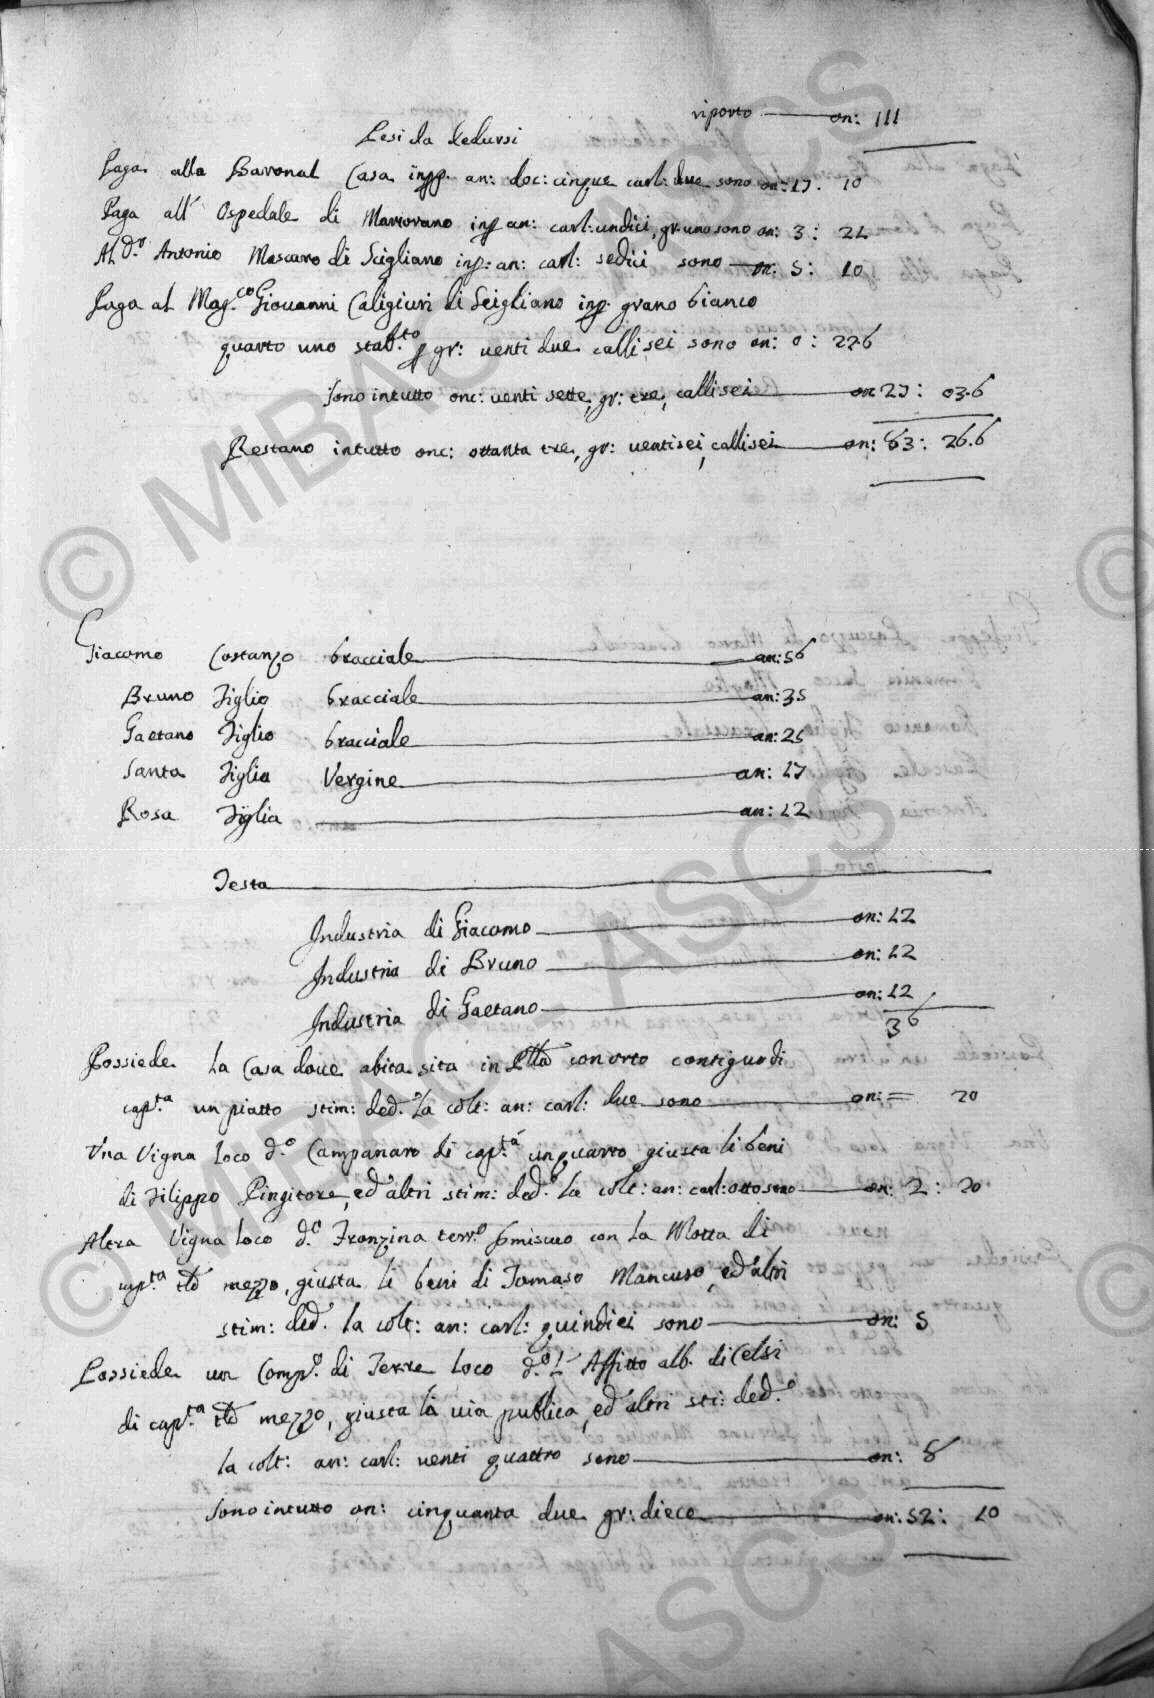 riporto on: 111
Pesi da dedursi
Paga alla Baronal Casa inpp. an: doc: cinque carl: due sono on: 17. 10
Paga all' Ospedale di Martorano inp an: carl: undici, gr: uno sono on: 3: 21
Al d.o Antonio Mascaro di Scigliano inp: an: carl: sedici sono on: 5: 10
Paga al Mag.co Giovanni Caligiuri di Scigliano inp. grano bianco
quarto uno stab.to p gr: venti due callisei sono on: 0: 226
Sono intutto onc: venti sette, gr: tre, callisei on 27: 03.6
Restano intutto onc: ottanta tre, gr: ventisei, callisei on: 83: 26.6
Giacomo Costanzo bracciale an: 56
Bruno Figlio bracciale an: 35
Gaetano Figlio bracciale an: 25
Santa Figlia Vergine an: 17
Rosa Figlia an: 12
Testa
Industria di Giacomo on: 12
Industria di Bruno on: 12
Industria di Gaetano on: 12
36
Possiede la Casa dove abita sita in con orto contiguo di
cap.ta un piatto stim: ded.o la colt: an: carl: due sono on: = 20
Una Vigna loco d.o Campanaro di cap.tá un quarto giusta li beni
di Filippo Pingitore, ed altri stim: ded.o la colt: an: carl: otto sono on: 2: 20
Altra Vigna loco d.o Fronzina terr.o pmiscuo con la Motta di
cap.ta mezzo, giusta li beni di Tomaso Mancuso, ed altri
stim: ded. la colt: an: carl: quindici sono on: 5
Possiede un Comp.o di Terre loco d.o L' Affitto alb. di Celsi
di cap.ta mezzo, giusta la via publica, ed altri sti: ded.o
la colt: an: carl: venti quattro sono on: 8
Sono intutto on: cinquanta due gr: diece on: 52: 10
© MIBAC - ASCS
© MIBAC - ASCS
ASCS